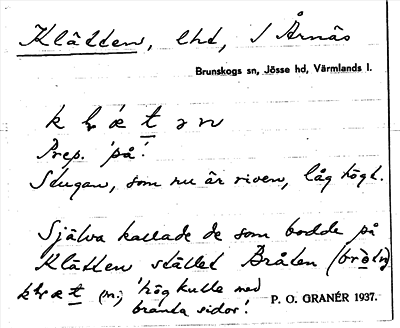 Klätten, lhd, i Årnäs
Brunskogs sn, Jösse hd, Värmlands l.
Prep. 'på'.
Stugan, som nu är riven, låg högt.
Själva kallade de som bodde på
Klätten stället Bråten
(n.) 'hög kulle med
branta sidor'.
P. O. GRANÉR 1937.